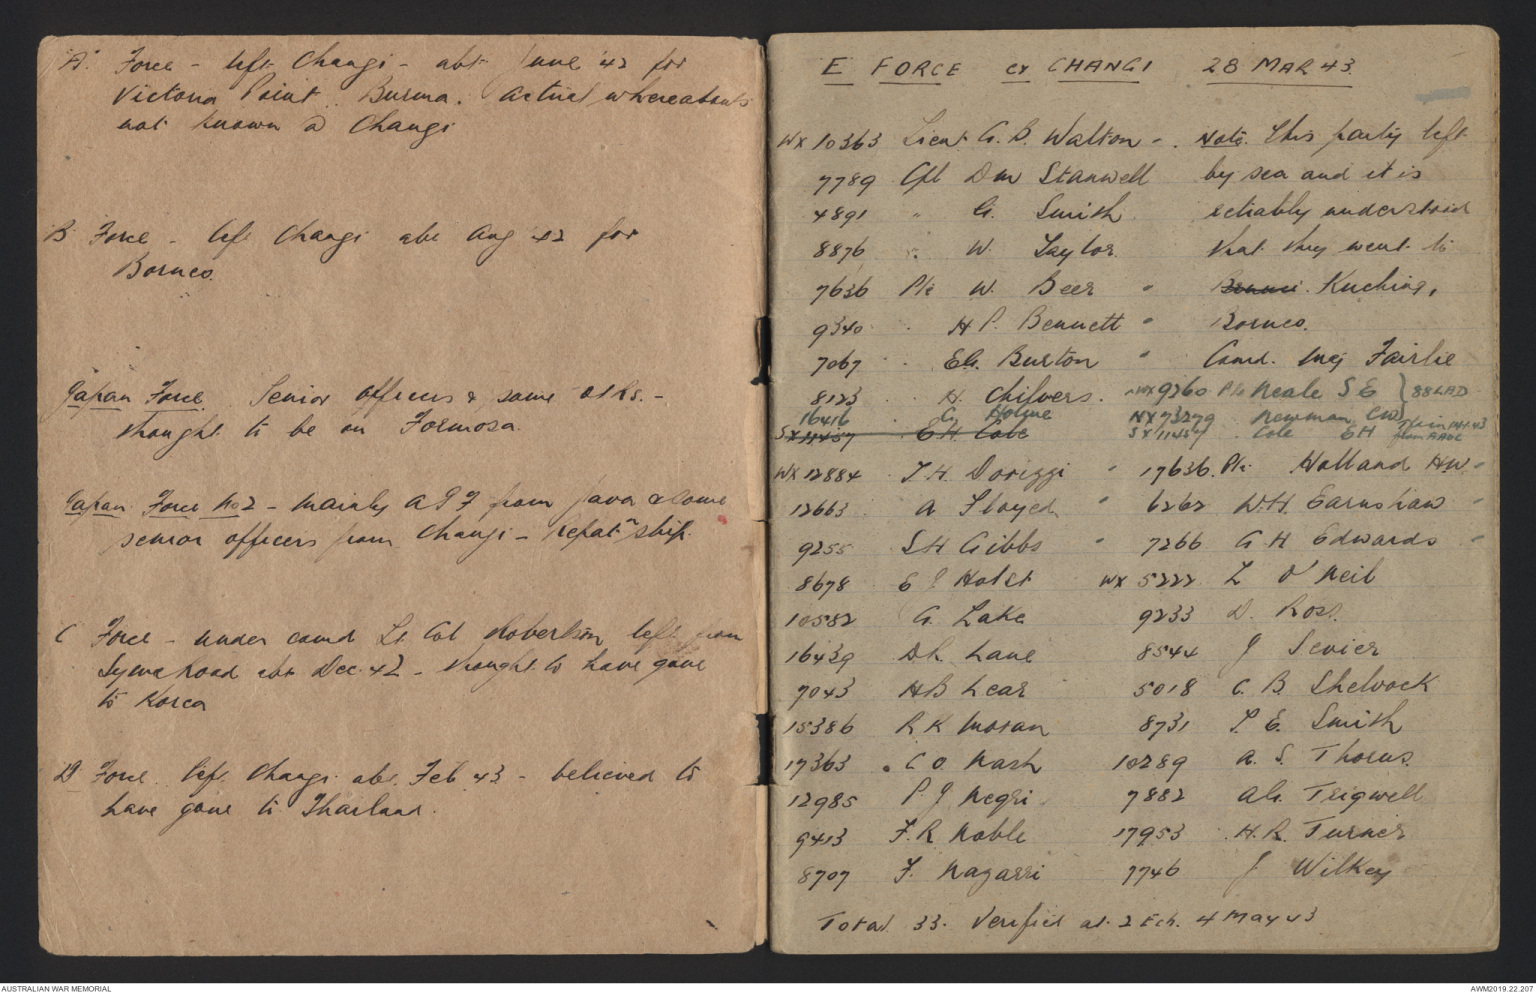 'A' Force - left Changi - abt June '42 for
Victoria Point Burma. Actual whereabouts
not known @ Changi
B Force - left Changi abt Aug '42 for
Borneo.
Japan Force. Senior officers & some ORs. -
thought to be on Formosa.
Japan Force No 2 - Mainly A I F from Java & some
senior officers from Changi - repatn ship.
C Force - under comd Lt Col Robertson left from
Syme Road abt Dec. 42 - thought to have gone
to Korea
D Force left Changi abt Feb 43 - believed to
have gone to Thailand.
E FORCE ex CHANGI 28 MAR 43.
WX 10363 Lieut G. B. Walton - . Note. This party left
7789 Cpl D M Stanwell by sea and it is
4891 " G. Smith reliably understood
8876 " W. Taylor that they went to
7636 Pte W. Beer " Kuching,
9340 " H P. Bennett " Borneo.
7067 " E G. Burton " Comd. Maj Fairlie
8123 H. Chilvers. WX 9260 Pte Neale S E } 88 LAD
16416 G. Holme NX 73279 Newman C W
SX 11457 E H. Cole SX 11457 Cole E H
WX 12884 T. H. Dorizzi " 17636. Pte Holland H W. "
12663 A Floyed " 6262 W. H. Earnshaw "
9255 S H Gibbs " 7266 G H Edwards "
8678 E J Holst WX 5222 L O'Neil
10582 G. Lake 9233 D. Ross.
16439 D R. Lane 8544 J Sevier
7043 H B Lear 5018 C. B. Shelvock
15386 R K Moran 8731 P. E. Smith
17363 . C O Nash 10289 A. S. Thorns.
12985 P J Negri 7882 A G. Trigwell
9413 F. R Noble 17953 H. R. Turner
8707 F. Nazzari 7746 J Wilkey
Total 33. Verified at 2 Ech. 4 May 43
AUSTRALIAN WAR MEMORIAL
AWM2019.22.207